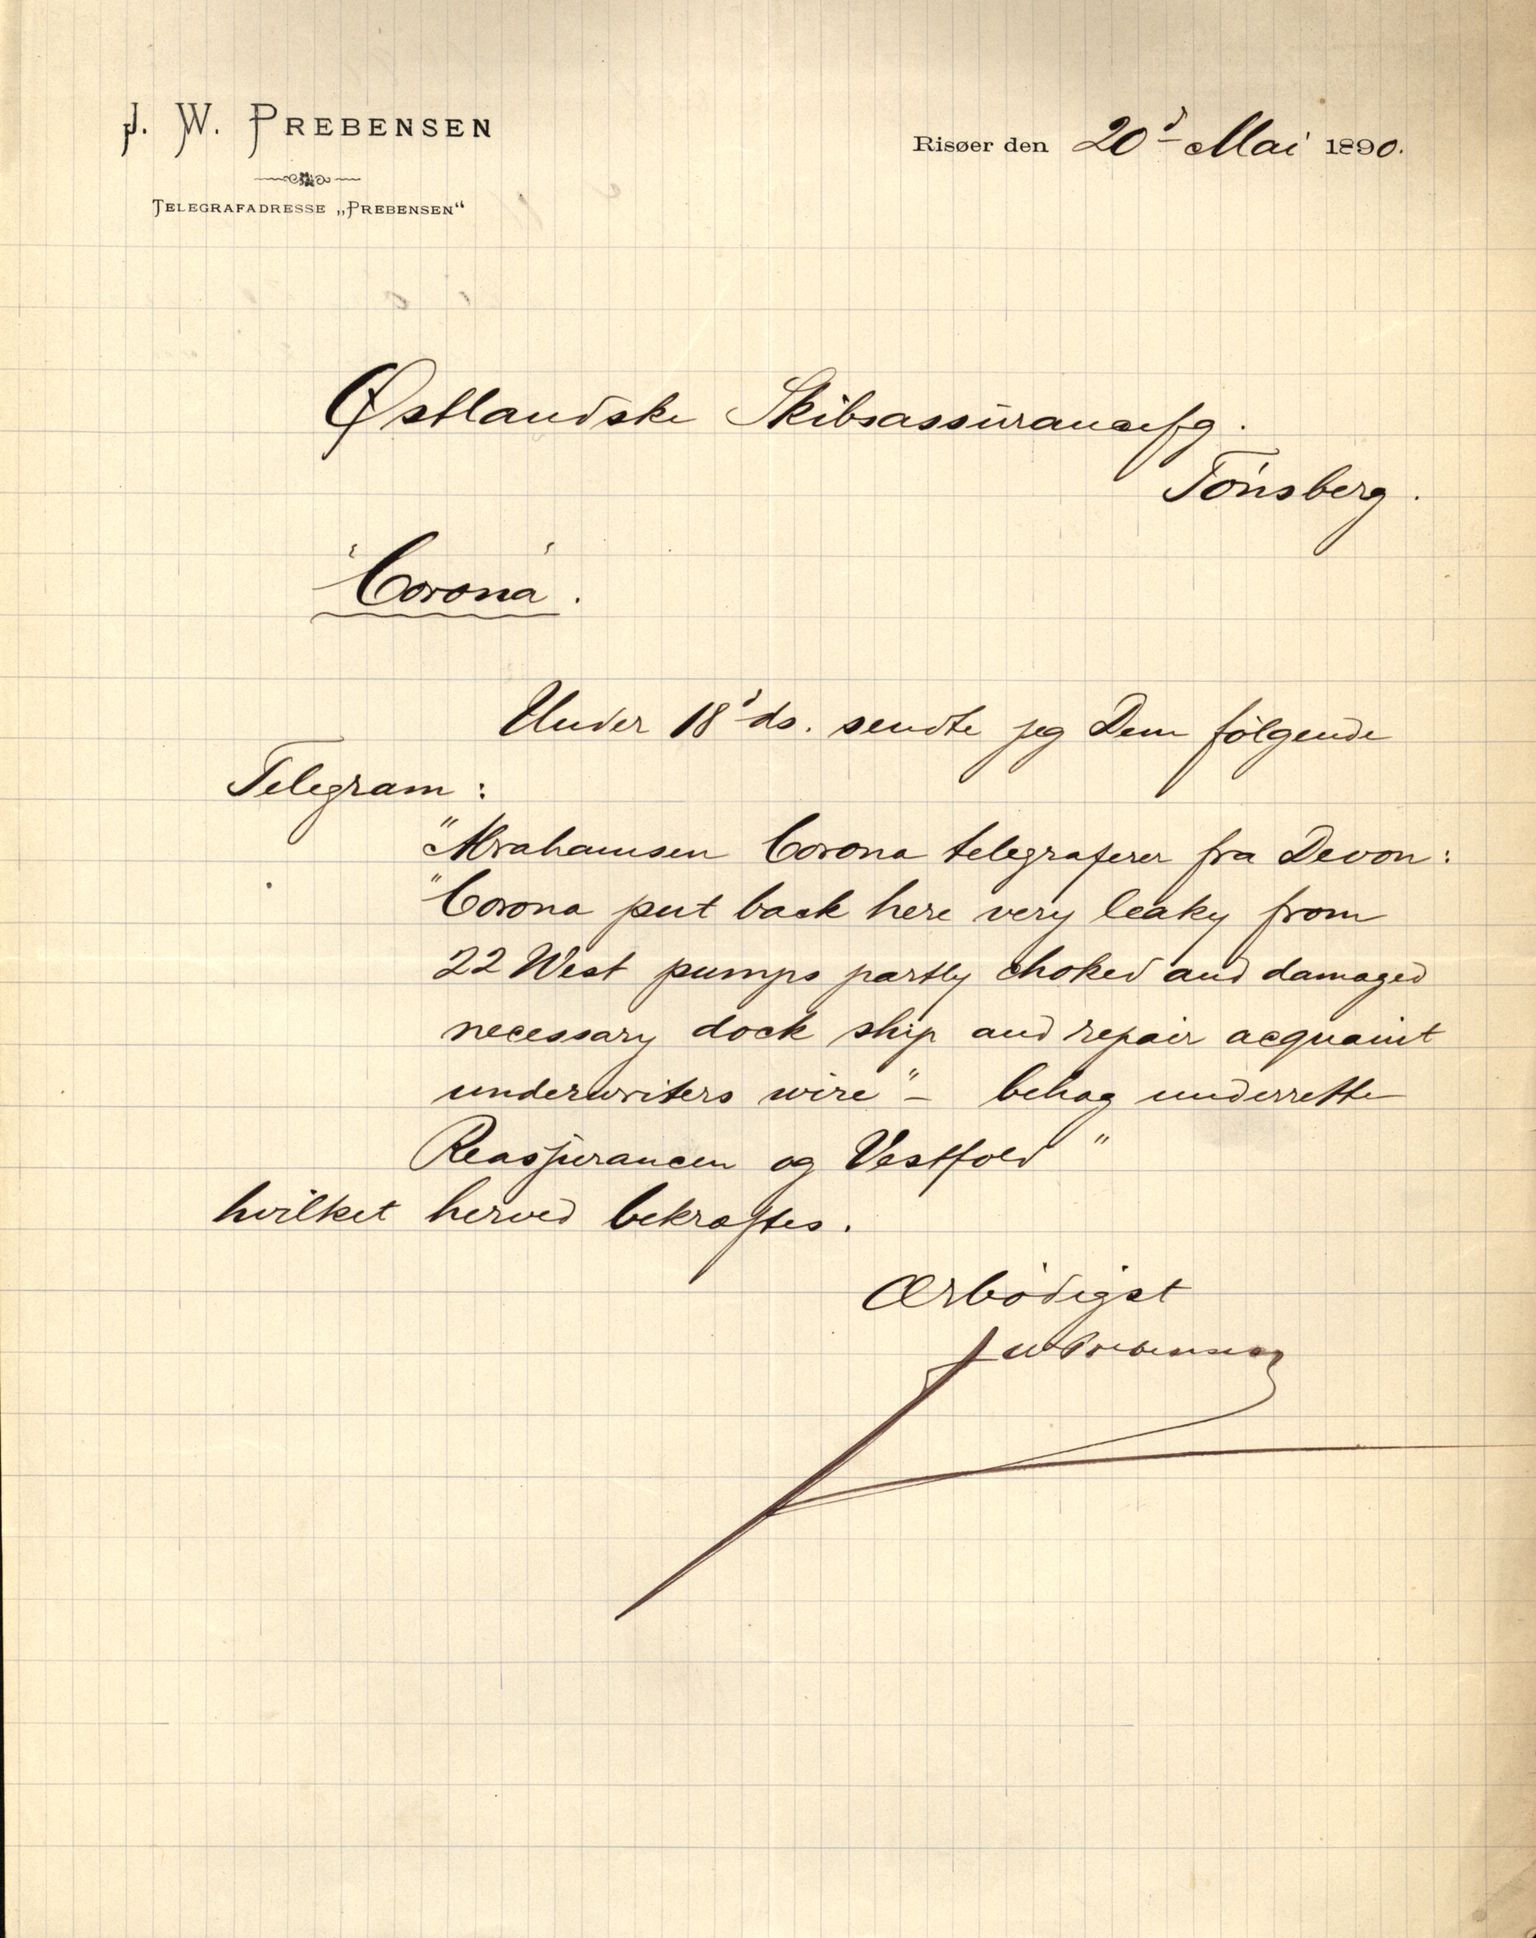 J. W. PREBENSEN
TELEGRAFADRESSE „PREBENSEN“
Risøer den 20d Mai 1890.
Østlandske Skibsassurancefg.
Tönsberg.
'Corona'.
Under 18d ds. sendte jeg Dem følgende
Telegram:
"Abrahamsen Corona telegraferer fra Devon:
"Corona put back here very leaky from
22 West pumps partly choked and damaged
necessary dock ship and repair acquaint
underwriters wire" – behag underrette
Reassurancen og Vestfold"
hvilket herved bekræftes.
Ærbödigst
J W Prebensen